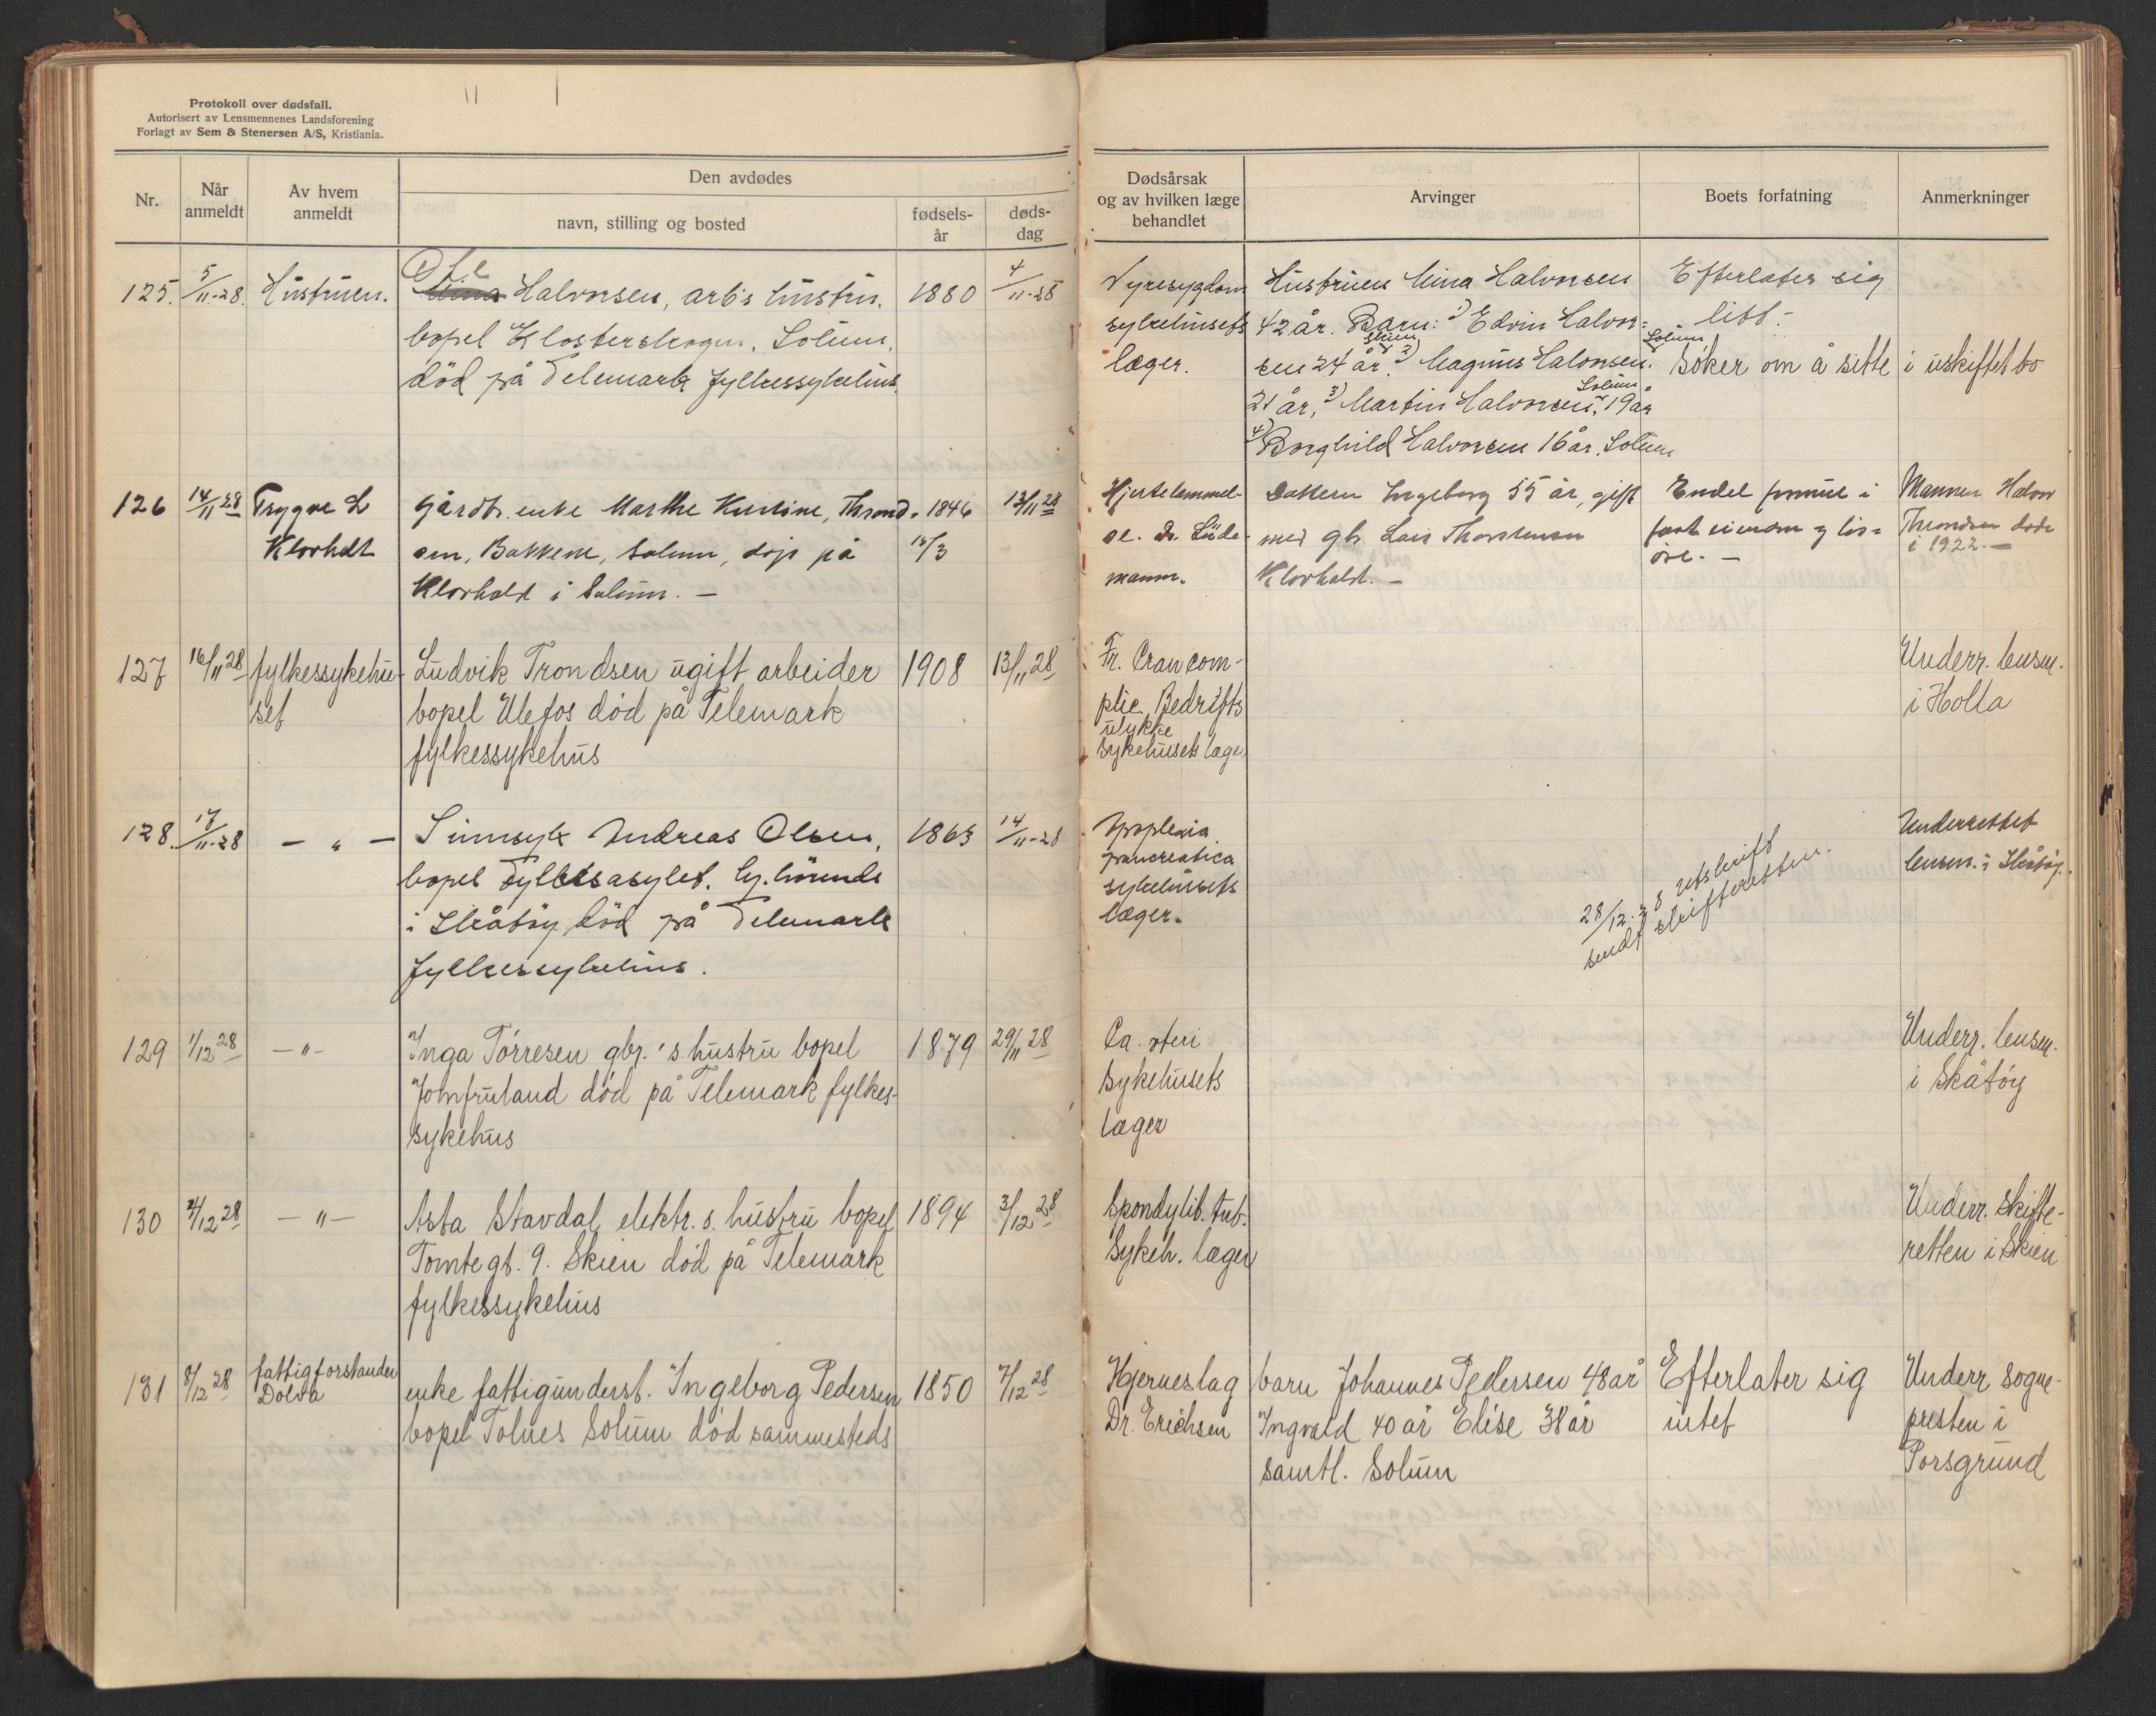 Protokoll over dødsfall.
Autorisert av Lensmennenes Landsforening
Forlagt av Sem & Stenersen A/S, Kristiania.
Nr.
Når anmeldt
Av hvem anmeldt
Den avdødes
navn, stilling og bosted
fødsels-år
døds-dag
Dødsårsak og av hvilken læge behandlet
Arvinger
Boets forfatning
Anmerkninger
125. 5/11-28. Hustruen.
Ole
Mina Halvorsen, arb's hustru. 1880 4/11-28
bopel Klosterskogen, Solum,
död på Telemark fylkessykehus.
Nyresygdom
sykehusets
læger.
Hustruen Mina Halvorsen
42 år. Barn: 1) Edvin Halvor=
sen 24 år, Skien 2) Magnus Halvorsen, Solum
21 år, 3) Martin Halvorsen, Solum 19 år
4) Borghild Halvorsen 16 år, Solum
Efterlater sig
litt.-
söker om å sitte i uskiftet bo
126 14/11 28 Trygve L
Klovholt
Gårdbr. enke Marthe Kirstine, Thrond- 1846 13/11 28
sen, Bakkene, Solum, døp på 15/3
Klovholt i Solum. -
Hjertelammel-
se. Dr. Lüde-
mann.
Datteren Ingeborg 55 år, gift
med gb. Lars Thorstensen
Klovholt. -
Endel formue i
fast eiendom og løs=
øre. -
Mannen Halvor
Throndsen døde
i 1922. -
127 16/11 28 fylkessykehu-
set
Ludvik Trondsen ugift arbeider 1908 13/11 28
bopel Ulefos död på Telemark
fylkessykehus
Fr. Cran com-
plic. Bedrifts
ulykke
sykehusets læger
Underr. lensm.
i Holla
128. 17/11-28 - " -
Sinnsyk Andreas Olsen, 1863 14/11-28
bopel Fylkesasylet, hj. hörende
i Skåtöy död på Telemark
fylkessykehus.
Apoplexia
pancreatica
sykehusets
læger.
28/12-28 utskrift
sendt skifteretten.
Underrettet
lensm. i Skåtöy.
129 1/12 28 - " -
Inga Törresen gbr.'s hustru bopel 1879 29/11 28
Jomfruland död på Telemark fylkes-
sykehus
Ca. uteri
sykehusets
læger
Underr. lensm.
i Skåtöy
130 4/12 28 - " -
Asta Stavdal elektr. s. hustru bopel 1894 3/12 28
Tomtegt. 9. Skien död på Telemark
fylkessykehus
Spondylit. tub.
Sykeh. læger
Underr. Skifte-
retten i Skien
131 8/12 28 fattigforstander
Dolva
enke fattigunderst. Ingeborg Pedersen 1850 7/12 28
bopel Tolnes Solum död sammesteds
Hjerneslag
Dr. Erichsen
barn Johannes Pedersen 48 år
Ingvald 40 år Elise 38 år
samtl. Solum
Efterlater sig
intet
Underr. Sogne-
presten i
Porsgrund